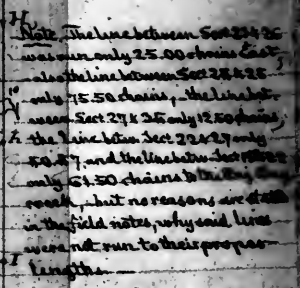 Note. The line between Sect 23 & 26
was run only 25.00 chains East
also the line between Sect 25 & 26
only 15.50 chains, the line bet-
ween Sect 27 & 26 only 12.50 chains,
the line betwn Sect 22 & 27 only
and the line betwn Sect
only 61.50 chains to
creek, but no reasons are
in the field notes, why said lines
were not run to their proper
lengths.